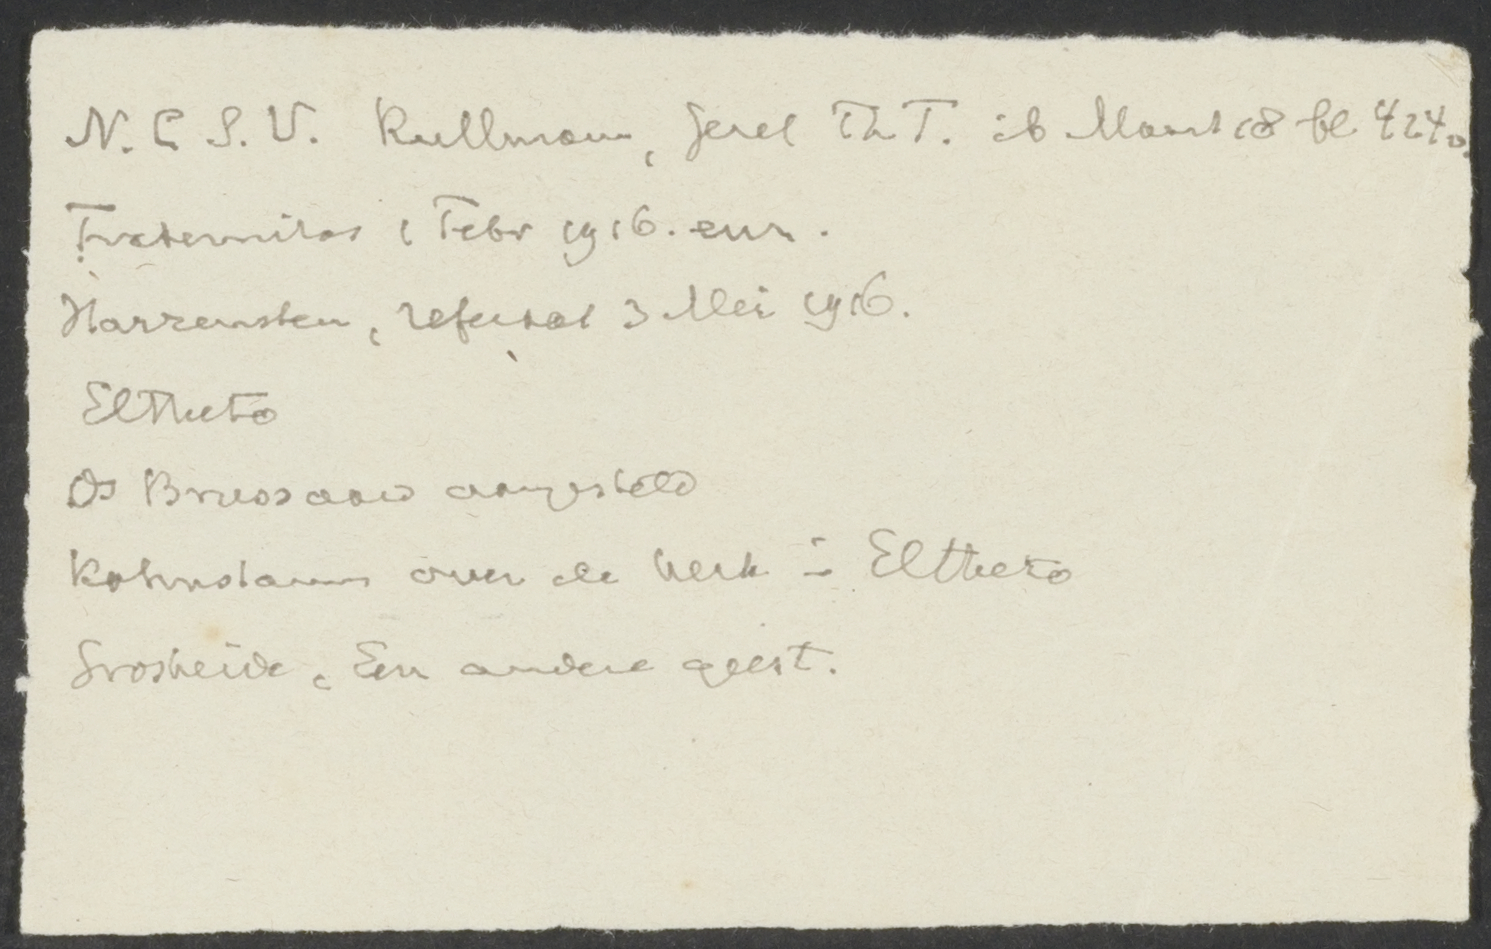 N.C.S.V. Rullmann, Geref Th T. ib Maart 18 bl 424v.
Fraternitas 1 Febr 1916. enz.
Harrenstein, referaat 3 Mei 1916.
Eltheto
Ds Brussaard aangesteld
Kohnstamm over de kerk in Eltheto
Grosheide, Een andere geest.